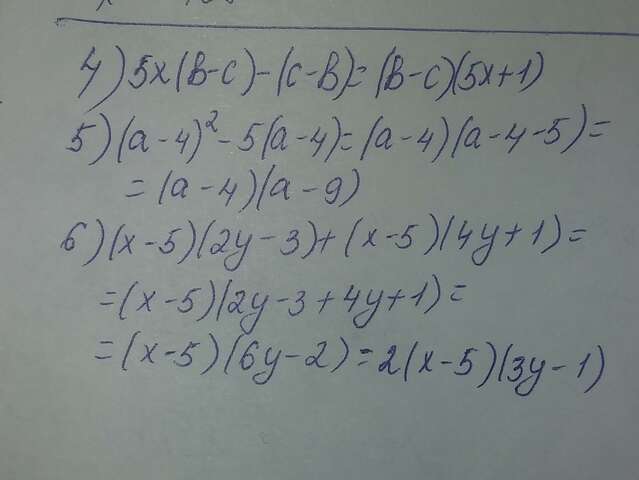 4) 5x(в-с)-(с-в)=(в-с)(5x+1)
5) (а-4)²-5(а-4)=(а-4)(а-4-5)=
=(а-4)(а-9)
6) (x-5)(2y-3)+(x-5)(4y+1)=
=(x-5)(2y-3+4y+1)=
=(x-5)(6y-2)=2(x-5)(3y-1)